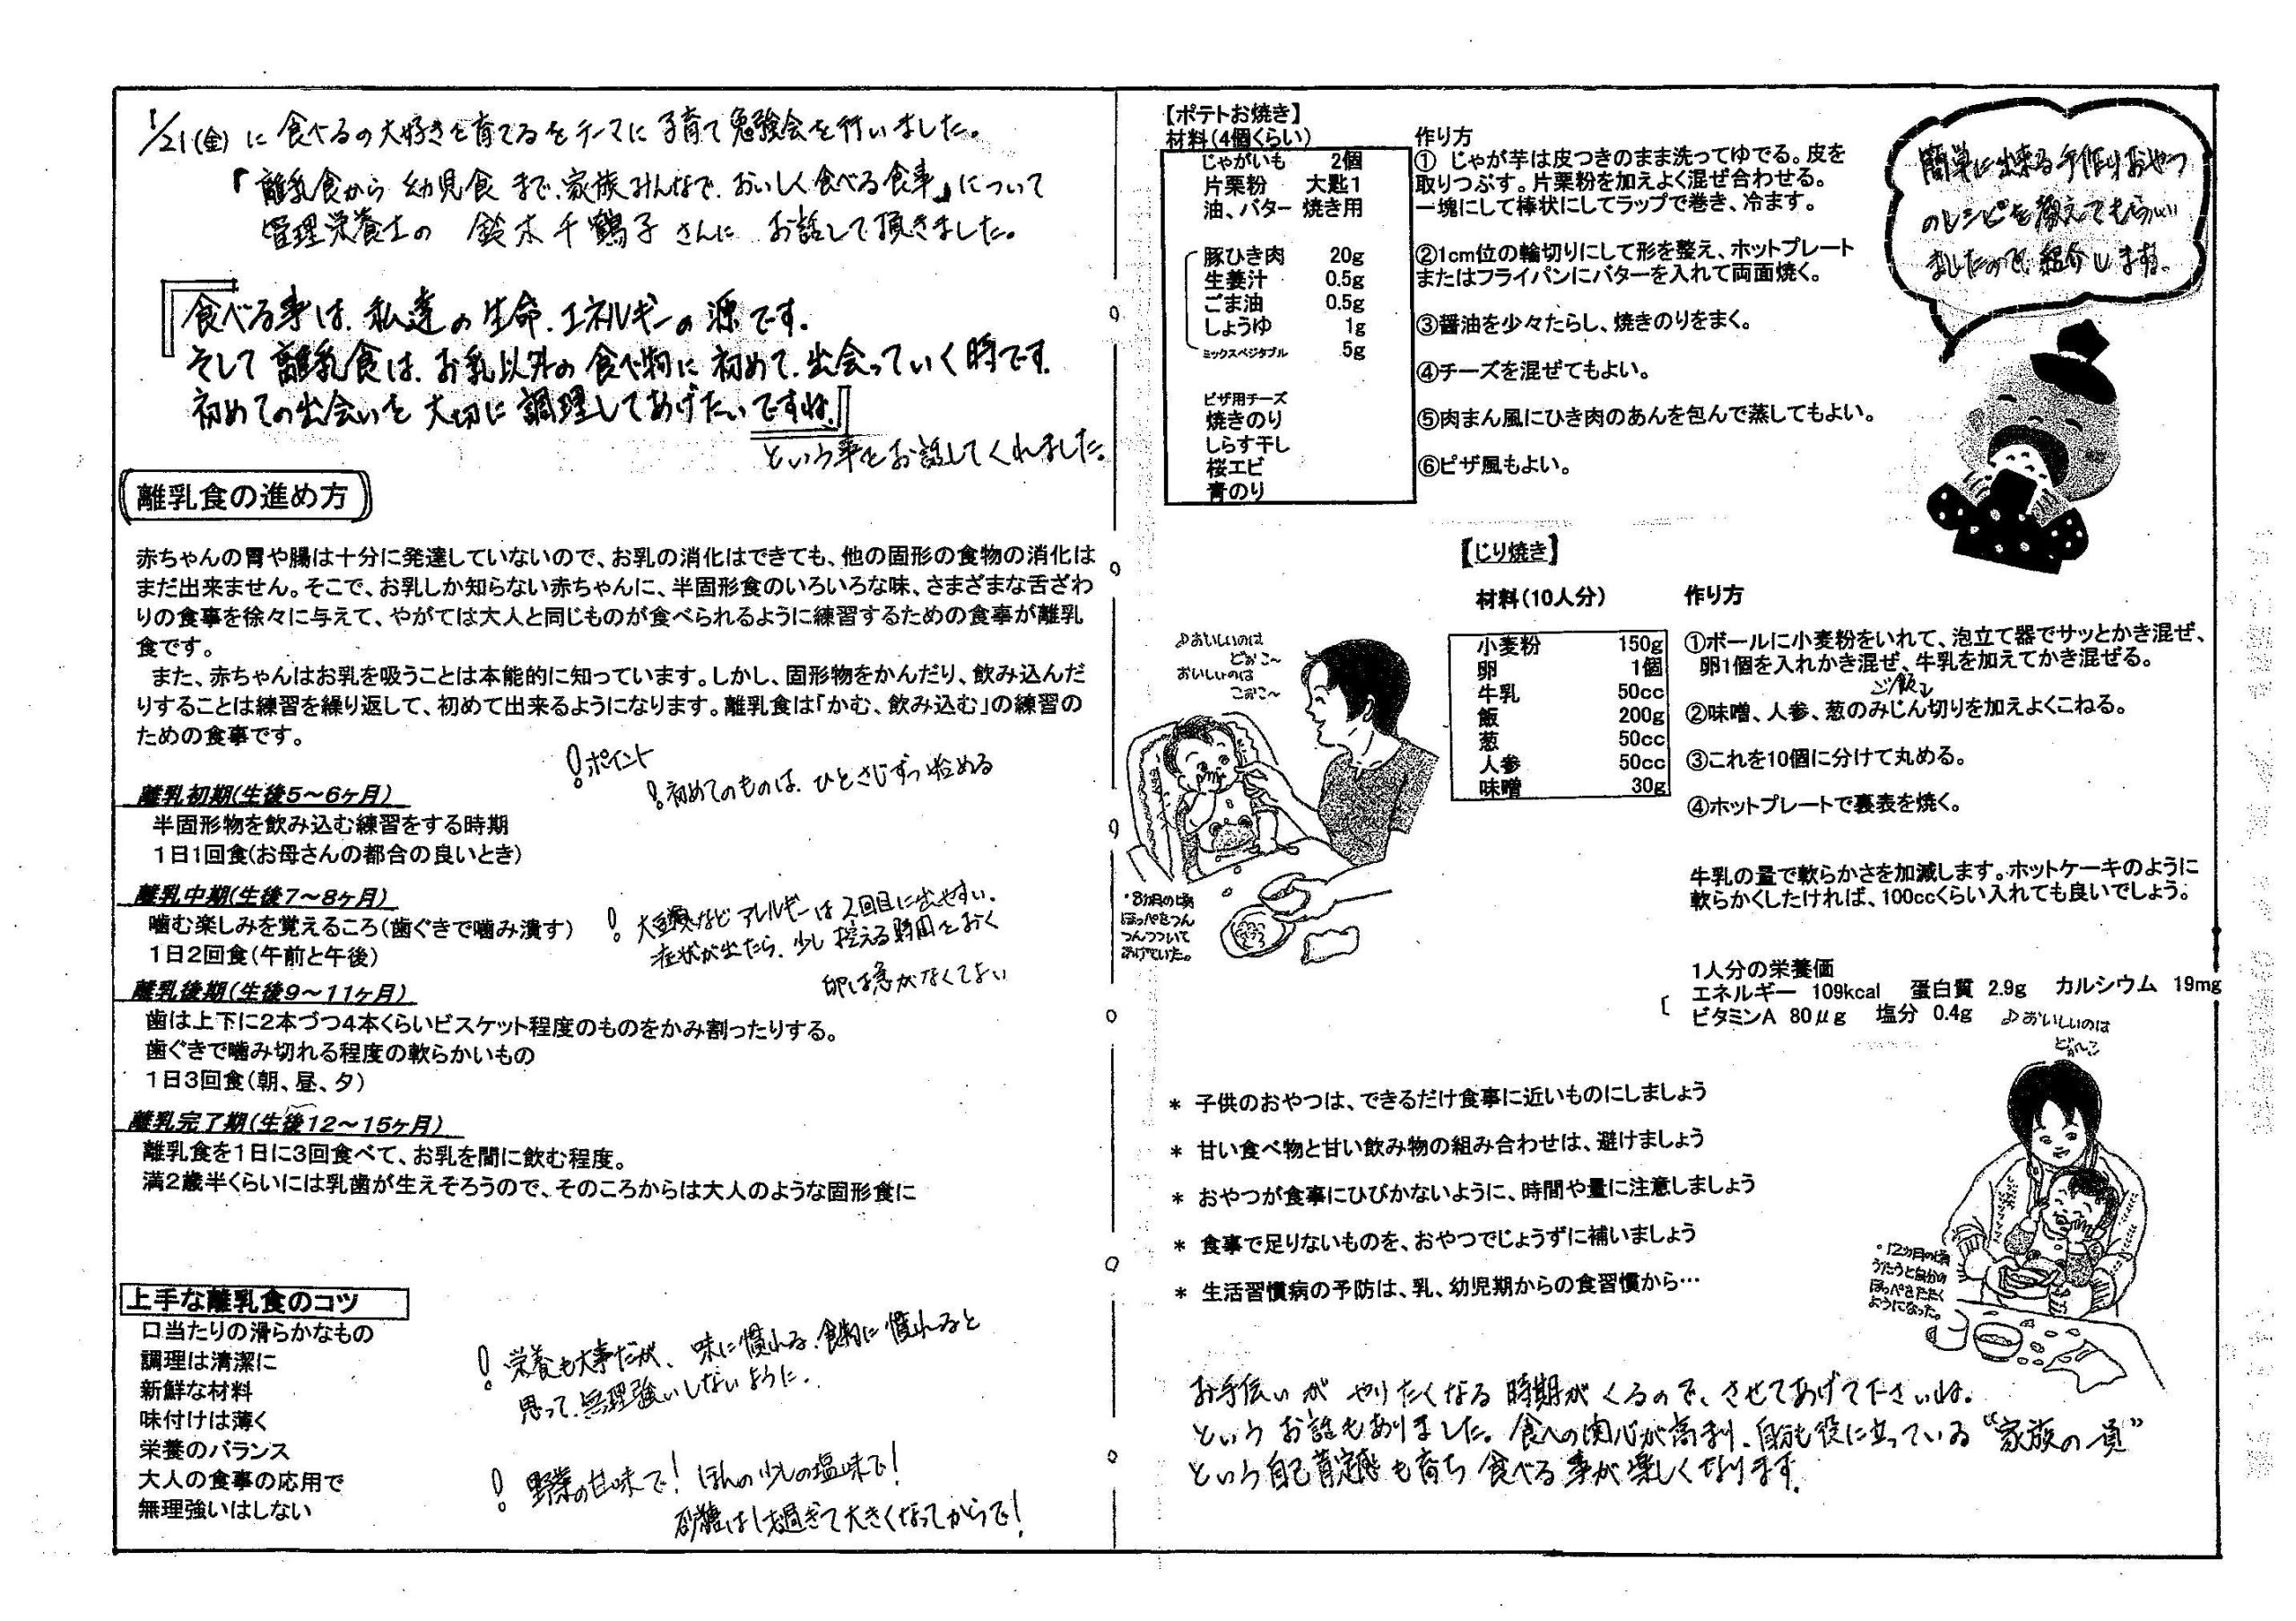 1/21(金)に食べるの大好きを育てるをテーマに子育て勉強会を行いました。
「離乳食から幼児食まで、家族みんなで、おいしく食べる食事」について
管理栄養士の 鈴木千鶴子さんに お話して頂きました。
『食べる事は、私達の生命、エネルギーの源です。
そして離乳食は、お乳以外の食べ物に初めて、出会っていく時です。
初めての出会いを大切に調理してあげたいですね。』
という事をお話してくれました。
離乳食の進め方
赤ちゃんの胃や腸は十分に発達していないので、お乳の消化はできても、他の固形の食物の消化は
まだ出来ません。そこで、お乳しか知らない赤ちゃんに、半固形食のいろいろな味、さまざまな舌ざわ
りの食事を徐々に与えて、やがては大人と同じものが食べられるように練習するための食事が離乳
食です。
また、赤ちゃんはお乳を吸うことは本能的に知っています。しかし、固形物をかんだり、飲み込んだ
りすることは練習を繰り返して、初めて出来るようになります。離乳食は「かむ、飲み込む」の練習の
ための食事です。
!ポイント
!初めてのものは、ひとさじずつ始める
離乳初期(生後5～6ヶ月)
半固形物を飲み込む練習をする時期
1日1回食(お母さんの都合の良いとき)
離乳中期(生後7～8ヶ月)
噛む楽しみを覚えるころ(歯ぐきで噛み潰す)
1日2回食(午前と午後)
!大豆類などアレルギーは2回目に出やすい。
症状が出たら、少し控える時間をおく
卵は急がなくてよい
離乳後期(生後9～11ヶ月)
歯は上下に2本づつ4本くらいビスケット程度のものをかみ割ったりする。
歯ぐきで噛み切れる程度の軟らかいもの
1日3回食(朝、昼、夕)
離乳完了期(生後12～15ヶ月)
離乳食を1日に3回食べて、お乳を間に飲む程度。
満2歳半くらいには乳歯が生えそろうので、そのころからは大人のような固形食に
上手な離乳食のコツ
口当たりの滑らかなもの
調理は清潔に
新鮮な材料
味付けは薄く
栄養のバランス
大人の食事の応用で
無理強いはしない
!栄養も大事だが、味に慣れる、食物に慣れると
思って、無理強いしないように。
!野菜の甘味で!ほんの少しの塩味で!
砂糖は1才過ぎて大きくなってからで!
【ポテトお焼き】
材料(4個くらい)
じゃがいも 2個
片栗粉 大匙1
油、バター 焼き用
豚ひき肉 20g
生姜汁 0.5g
ごま油 0.5g
しょうゆ 1g
ミックスベジタブル 5g
ピザ用チーズ
焼きのり
しらす干し
桜エビ
青のり
作り方
① じゃが芋は皮つきのまま洗ってゆでる。皮を
取りつぶす。片栗粉を加えよく混ぜ合わせる。
一塊にして棒状にしてラップで巻き、冷ます。
②1cm位の輪切りにして形を整え、ホットプレート
またはフライパンにバターを入れて両面焼く。
③醤油を少々たらし、焼きのりをまく。
④チーズを混ぜてもよい。
⑤肉まん風にひき肉のあんを包んで蒸してもよい。
⑥ピザ風もよい。
簡単に出来る手作りおやつ
のレシピを教えてもらい
ましたので、紹介します。
【じり焼き】
材料(10人分)
小麦粉 150g
卵 1個
牛乳 50cc
飯 200g
葱 50cc
人参 50cc
味噌 30g
作り方
①ボールに小麦粉をいれて、泡立て器でサッとかき混ぜ、
卵1個を入れかき混ぜ、牛乳を加えてかき混ぜる。
ご飯と
②味噌、人参、葱のみじん切りを加えよくこねる。
③これを10個に分けて丸める。
④ホットプレートで裏表を焼く。
牛乳の量で軟らかさを加減します。ホットケーキのように
軟らかくしたければ、100ccくらい入れても良いでしょう。
1人分の栄養価
エネルギー 109kcal 蛋白質 2.9g カルシウム 19mg
ビタミンA 80μg 塩分 0.4g
♪おいしいのは
どおこ～
おいしいのは
こおこ～
・8カ月の頃
ほっぺをつん
つんつついて
あげていた。
♪おいしいのは
どぉ～こ
・12カ月の頃
うたうと自分の
ほっぺをたたく
ようになった。
* 子供のおやつは、できるだけ食事に近いものにしましょう
* 甘い食べ物と甘い飲み物の組み合わせは、避けましょう
* おやつが食事にひびかないように、時間や量に注意しましょう
* 食事で足りないものを、おやつでじょうずに補いましょう
* 生活習慣病の予防は、乳、幼児期からの食習慣から…
お手伝いが やりたくなる 時期が くるので、させてあげて下さいね。
という お話もありました。食への関心が高まり、自分も役に立っている“家族の一員”
という自己肯定感も育ち 食べる事が楽しくなります。